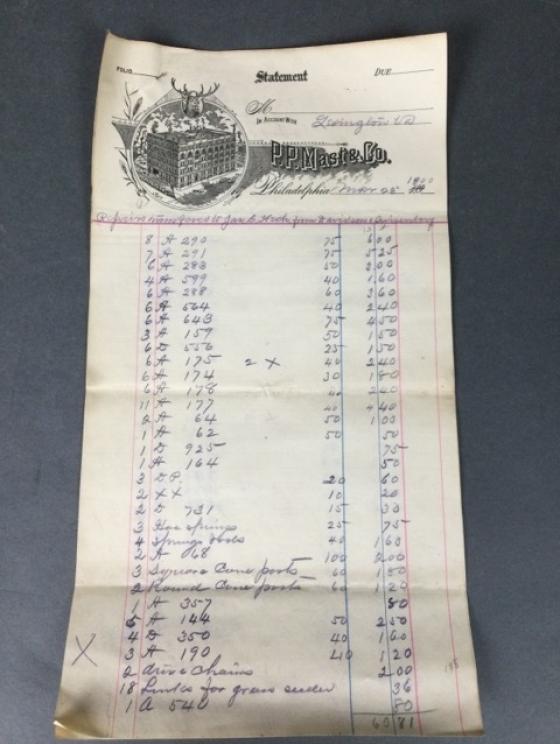 FOLIO
Statement
DUE
M
IN ACCOUNT WITH
Lexington Va
P.P. Mast & Co.
Philadelphia Mar 28 1900
Repairs transferred to Jas from Davidson
8 A 290 75 6 00
7 A 291 75 5 25
6 A 283 50 3 00
4 A 599 40 1 60
6 A 288 60 3 60
6 A 564 40 2 40
6 A 643 75 4 50
3 A 159 50 1 50
6 D 556 25 1 50
6 A 175 2 X 40 2 40
6 A 174 30 1 80
6 A 178 40 2 40
11 A 177 40 4 40
2 A 64 50 1 00
1 A 62 50 50
1 D 925 75
1 A 164 50
3 D P. 20 60
2 XX 10 20
2 D 731 15 30
3 Hoe springs 25 75
4 Springs rods 40 1 60
2 A 68 100 2 00
3 Square Cone posts 60 1 80
2 Round Cone posts 60 1 20
1 A 357 80
5 A 144 50 2 50
4 D 350 40 1 60
X 3 A 190 40 1 20
2 drive chains 2 00
18 Links for grass seeder 36
1 A 540 80
60 81